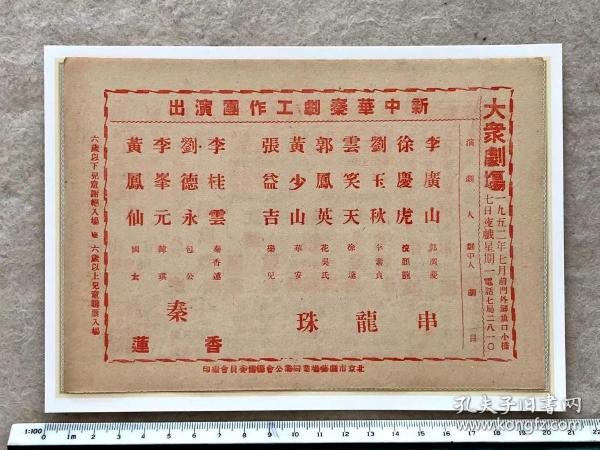 新中華秦劇工作團演出
大衆劇場
一九五二年七月七日夜戲星期一
前門外鮮魚口小橋
電話七局二八一〇
演劇人 劇中人 劇目
李廣山
徐慶虎
劉玉秋 李素貞
雲笑天 徐達
郭鳳英 花吳氏
黃少山 華安
張益吉
串龍珠
李桂雲 秦香蓮
劉德永 包公
李峯元 韓琪
黃鳳仙 國太
秦香蓮
六歲以下兒童謝絕入場 六歲以上兒童購票入場
孔夫子旧书网
kongfz.com
1:100 0 1m 2 3 4 5 6 7 8 9 10 11 12 13 14 15 16 17 18 19 20 21 22